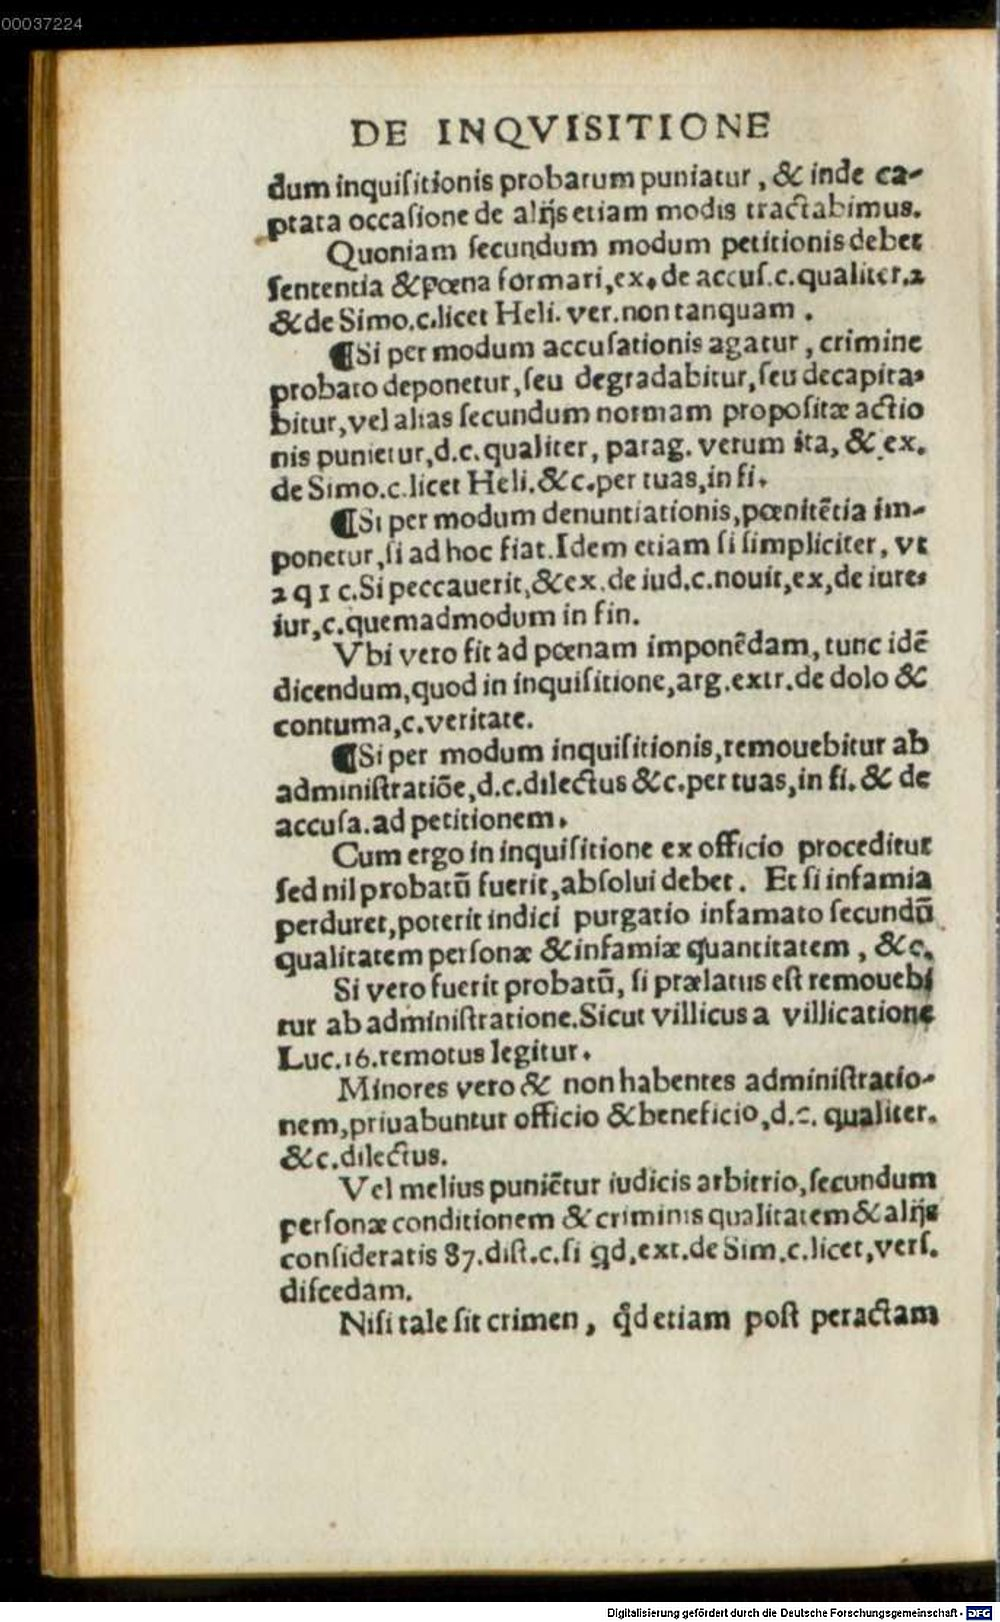 00037224
DE INQVISITIONE
dum inquiſitionis probatum puniatur, & inde ca-
ptata occaſione de alijs etiam modis tractabimus.
Quoniam ſecundum modum petitionis debet
ſententia & pœna formari, ex. de accuſ. c. qualiter. 2
& de Simo. c. licet Heli. ver. non tanquam.
¶Si per modum accuſationis agatur, crimine
probato deponetur, ſeu degradabitur, ſeu decapita-
bitur, vel alias ſecundum normam propoſitæ actio
nis punietur, d. c. qualiter, parag. verum ita, & ex.
de Simo. c. licet Heli. & c. per tuas, in fi.
¶Si per modum denuntiationis, pœnitẽtia im-
ponetur, ſi ad hoc fiat. Idem etiam ſi ſimpliciter, vt
2 q 1 c. Si peccauerit, & ex. de iud. c. nouit, ex, de iure-
iur, c. quemadmodum in fin.
Vbi vero fit ad pœnam imponẽdam, tunc idẽ
dicendum, quod in inquiſitione, arg. extr. de dolo &
contuma, c. veritate.
¶Si per modum inquiſitionis, remouebitur ab
adminiſtratiõe, d. c. dilectus & c. per tuas, in fi. & de
accuſa. ad petitionem.
Cum ergo in inquiſitione ex officio proceditur
ſed nil probatũ fuerit, abſolui debet. Et ſi infamia
perduret, poterit indici purgatio infamato ſecundũ
qualitatem perſonæ & infamiæ quantitatem, &c.
Si vero fuerit probatũ, ſi prælatus eſt remouebi
tur ab adminiſtratione. Sicut villicus a villicatione
Luc. 16. remotus legitur.
Minores vero & non habentes adminiſtratio-
nem, priuabuntur officio & beneficio, d. c. qualiter.
& c. dilectus.
Vel melius puniẽtur iudicis arbitrio, ſecundum
perſonæ conditionem & criminis qualitatem & alijs
conſideratis 87. diſt. c. ſi qd, ext. de Sim. c. licet, verſ.
diſcedam.
Niſi tale ſit crimen, qd̃ etiam poſt peractam
Digitalisierung gefördert durch die Deutsche Forschungsgemeinschaft - DFG